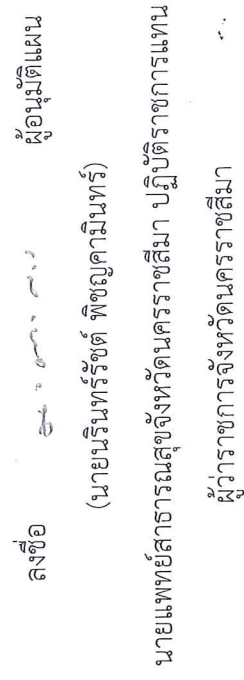 ลงชื่อ ผู้อนุมัติแผน
(นายนรินทร์รัชต์ พิชญคามินทร์)
นายแพทย์สาธารณสุขจังหวัดนครราชสีมา ปฏิบัติราชการแทน
ผู้ว่าราชการจังหวัดนครราชสีมา